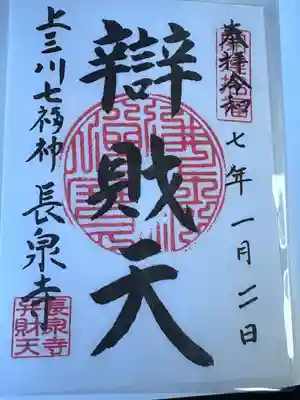 奉拝令和
七年一月二日
辯財天
上三川七福神 長泉寺
長泉寺
弁財天